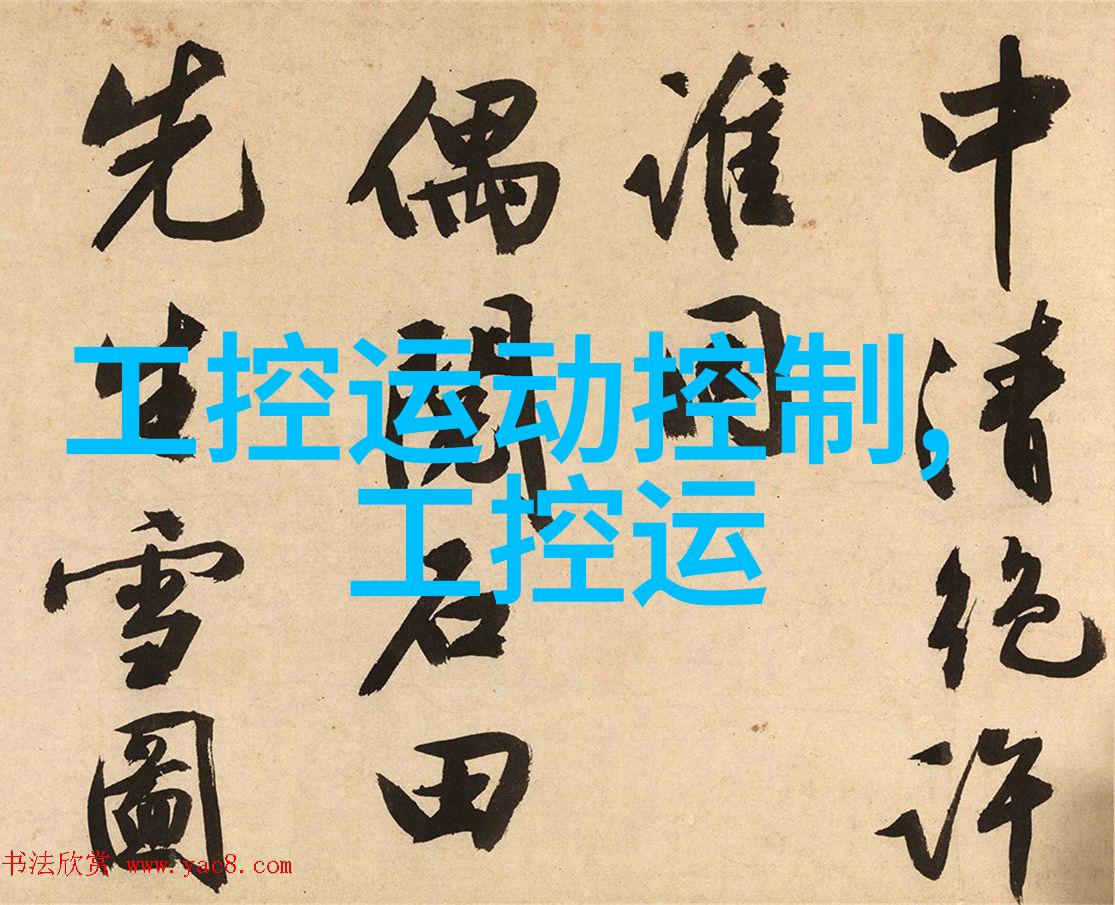 中清絶許
誰同
偶閱石田
先生雪圖
工控运动控制,
工控运
书法欣赏 www.yac8.com